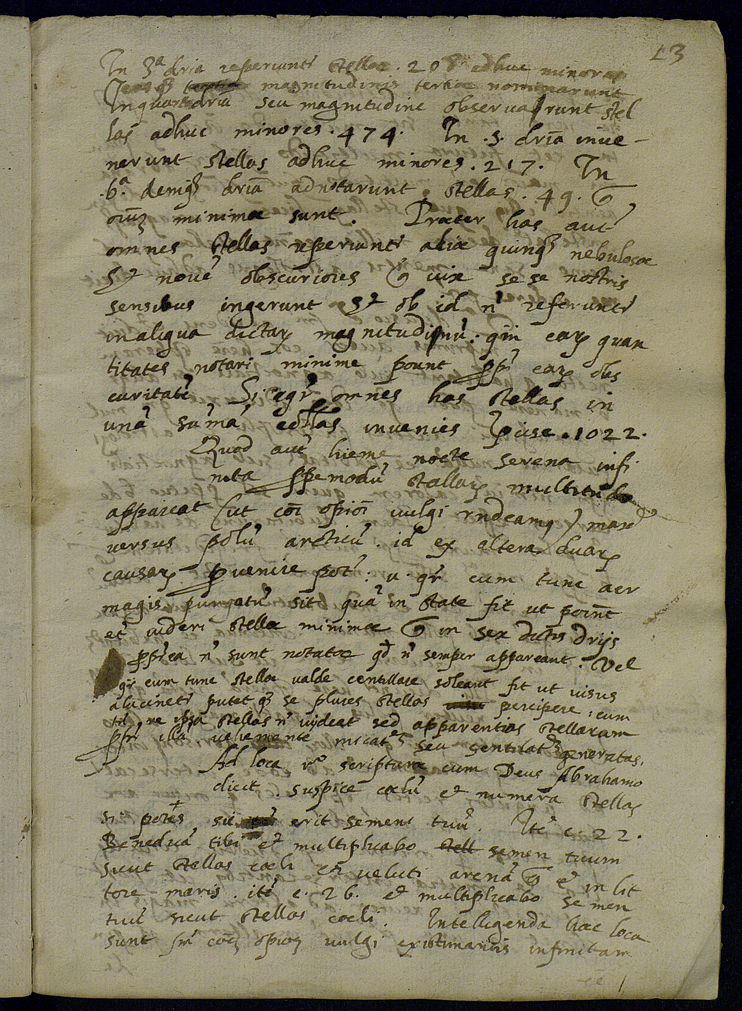 13
In 3ª dria reperiunt' stellae . 208 adhuc minores
magnitudinis tertiae nominarunt
In quarta dria seu magnitudine observarunt stel
las adhuc minores . 474 . In . 5 . dria inve-
nerunt stellas adhuc minores . 217 . In
.6.ª demq3 dria adnotarunt stellas . 49 .
oiu3 minimae sunt . Praeter has aut'
omnes stellas reperiunt' aliae quinq3 nebulosae
Et nove' obscuriores vix se se nostris
sensibus ingerunt Et ob id n' referunt'
in aliqua dictar magnitudinu' : qm ear quan
titates notari minime pount ppr ear obs
curitate' Si ergo omnes has stellas in
una' su'ma' collas invenies pcise . 1022 .
Quod aut' hieme nocte serena infi
nita ppemodu' stellar multitudo
appareat (ut coi opioi vulgi rndeamq) max'
versus polu' arcticu' . id ex altera duar
causar pvenire pot' : v . gr cum tunc aer
magis purgatu' sit qua' in state fit ut point
et' videri stellae minimae in sex dictis drijs
ppterea n' sunt notatae qd n' semper appareant . Vel
qr cum tunc stellae valde centillare soleant fit ut visus
alucinet' putet q3 se plures stellas percipere : cum
re ipsa stellas n' videat sed apparentias stellaram
ppr illa' vehemente' micat' seu sentilat' generatas .
Ad loca v° scripturae cum Deus Abrahamo
dicit . suspice coelu' et numera stellas
si potes sic erit semen tuu' . Ite' c . 22 .
Benedica' tibi et multiplicabo semen tuum
sicut stellas coeli et veluti arena' e' in lit
tore maris . ite' c . 26 . et multiplicabo semen
tuu' sicut stellas coeli . Intelligenda haec loca
sunt coe3 opio3 vulgi existimantis infinitam